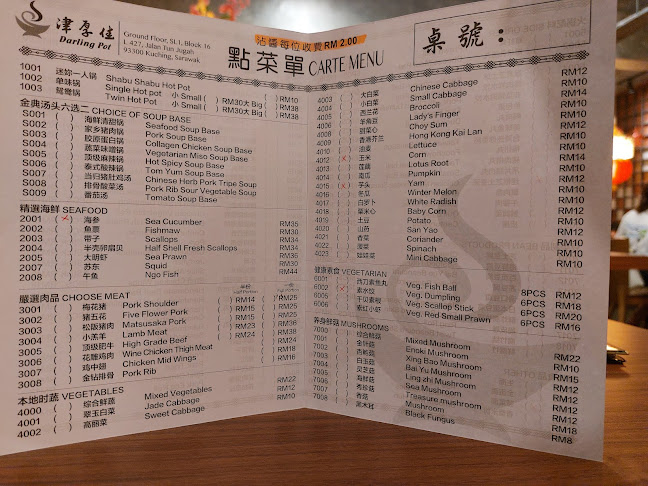 津厚佳
Darling Pot
Ground Floor, SL1, Block 16
L 427, Jalan Tun Jugah
93300 Kuching, Sarawak
沾醬每位收費 RM 2.00
點菜單 CARTE MENU
桌號：
1001 迷妳一人锅 Shabu Shabu Hot Pot RM10
1002 单味锅 Single Hot pot 小 Small ( ) RM30 大 Big ( ) RM38
1003 鸳鸯锅 Twin Hot Pot 小 Small ( ) RM30 大 Big ( ) RM38
金典汤头六选二 CHOICE OF SOUP BASE
S001 ( ) 海鲜清甜锅 Seafood Soup Base
S002 ( ) 家乡猪肉锅 Pork Soup Base
S003 ( ) 胶原蛋白锅 Collagen Chicken Soup Base
S004 ( ) 蔬菜味噌锅 Vegetarian Miso Soup Base
S005 ( ) 顶级麻辣锅 Hot Spicy Soup Base
S006 ( ) 泰式酸辣锅 Tom Yum Soup Base
S007 ( ) 当归猪肚鸡汤 Chinese Herb Pork Tripe Soup
S008 ( ) 排骨酸菜汤 Pork Rib Sour Vegetable Soup
S009 ( ) 番茄汤 Tomato Soup Base
精選海鮮 SEAFOOD
2001 ( ) 海参 Sea Cucumber RM35
2002 ( ) 鱼票 Fishmaw RM30
2003 ( ) 带子 Scallops RM34
2004 ( ) 半壳卵扇贝 Half Shell Fresh Scallops RM34
2005 ( ) 大明虾 Sea Prawn RM36
2007 ( ) 苏东 Squid RM30
2008 ( ) 午鱼 Ngo Fish RM44
嚴選肉品 CHOOSE MEAT
3001 ( ) 梅花猪 Pork Shoulder ( ) RM14 ( ) RM25
3002 ( ) 猪五花 Five Flower Pork ( ) RM14 ( ) RM25
3003 ( ) 松阪猪肉 Matsusaka Pork ( ) RM15 ( ) RM28
3004 ( ) 小羔羊 Lamb Meat ( ) RM23 ( ) RM36
3005 ( ) 顶级肥牛 High Grade Beef ( ) RM24 ( ) RM38
3006 ( ) 花雕鸡肉 Wine Chicken Thigh Meat RM24
3007 ( ) 鸡中翅 Chicken Mid Wings RM18
3008 ( ) 金钻排骨 Pork Rib RM16
本地时蔬 VEGETABLES
4000 ( ) 綜合鮮蔬 Mixed Vegetables RM22
4001 ( ) 翠玉白菜 Jade Cabbage RM12
4002 ( ) 高丽菜 Sweet Cabbage RM10
4003 ( ) 大白菜 Chinese Cabbage RM12
4004 ( ) 小白菜 Small Cabbage RM14
4005 ( ) 西兰花 Broccoli RM10
羊角豆 Lady's Finger
甜菜心 Choy Sum
香港芥兰 Hong Kong Kai Lan
4010 ( ) 油麦 Lettuce
4012 ( ) 玉米 Corn
莲藕 Lotus Root
4014 ( ) 南瓜 Pumpkin
4015 ( ) 芋头 Yam
4016 ( ) 冬瓜 Winter Melon
4017 ( ) 白萝卜 White Radish
4018 ( ) 粟米心 Baby Corn
4019 ( ) 土豆 Potato
4020 ( ) 山药 San Yao
4021 ( ) 香菜 Coriander
4022 ( ) 菠菜 Spinach
4023 ( ) 娃娃菜 Mini Cabbage RM10
健康素食 VEGETARIAN
6001 ( ) 西刀素鱼丸 Veg. Fish Ball 8PCS RM12
6002 ( ) 素水饺 Veg. Dumpling 6PCS RM18
6005 ( ) 干贝素根 Veg. Scallop Stick 6PCS RM20
6006 ( ) 素红小虾 Veg. Red Small Prawn 6PCS RM16
养身鲜菇 MUSHROOMS
7000 ( ) 綜合鲜菇 Mixed Mushroom RM22
7001 ( ) 金针菇 Enoki Mushroom RM10
7002 ( ) Xing Bao Mushroom RM12
7003 ( ) 白玉菇 Bai Yu Mushroom RM15
7005 ( ) 灵芝菇 Ling zhi Mushroom RM12
7006 ( ) 海鲜菇 Sea Mushroom RM12
7007 ( ) Treasure mushroom RM12
7007 ( ) 香菇 Mushroom RM18
7008 ( ) 黑木耳 Black Fungus RM8